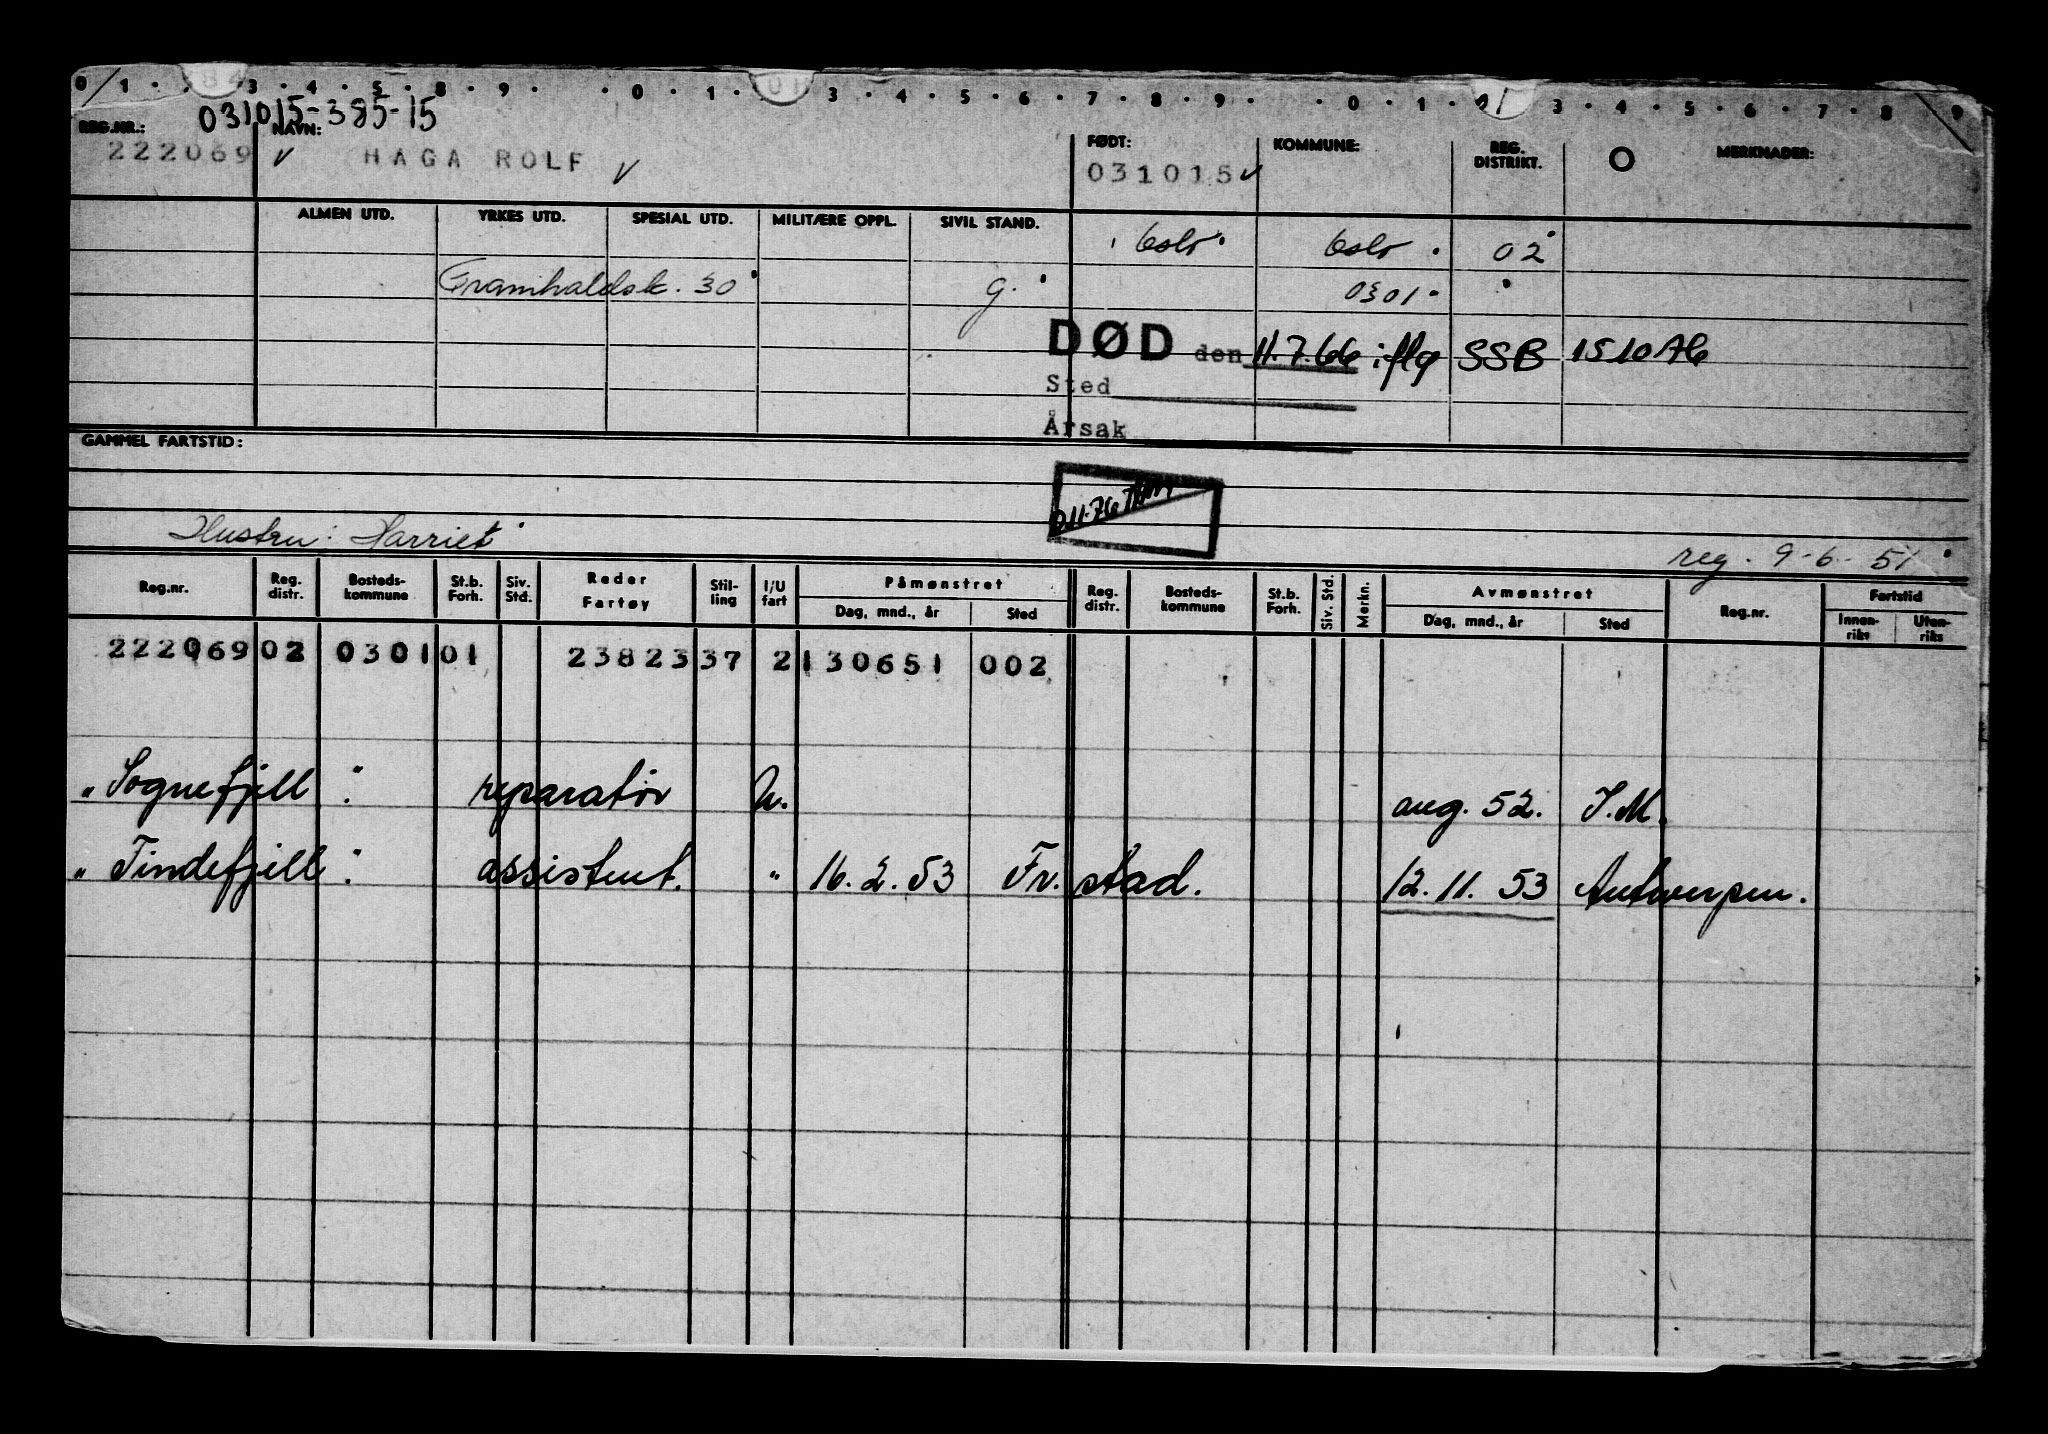 0 1 . 84 3 . 4 . 5 . 8 . 9 . . 0 . 1 . 01 3 . 4 . 5 . 6 . 7 . 8 . 9 . . 0 . 1 . 01 3 . 4 . 5 . 6 . 7 . 8 . 9
031015-385-15
REG.NR.: NAVN: FØDT: KOMMUNE: REG. DISTRIKT. O MERKNADER:
222069 HAGA ROLF 031015
ALMEN UTD. YRKES UTD. SPESIAL UTD. MILITÆRE OPPL. SIVIL STAND.
Oslo Oslo 02
Framhaldsk. 30 g. 0301
DØD den 11.7.66 iflg SSB 151076
Sted
Årsak
GAMMEL FARTSTID:
Hustru: Harriet
reg. 9-6-51
Reg.nr. Reg. distr. Bosteds-kommune St.b. Forh. Siv. Std. Reder Fartøy Stil-ling I/U fart Påmønstret Dag, mnd., år Sted Reg. distr. Bosteds-kommune St.b. Forh. Siv. Std. Merkn. Avmønstret Dag, mnd., år Sted Reg.nr. Fartstid Innen-riks Uten-riks
222069 02 0301 01 23823 37 2 130651 002
"Sognefjell" reparatør U. aug. 52. I.M.
"Tindefjell" assistent. " 16.2.53 Fr.stad. 12.11.53 Antwerpen.